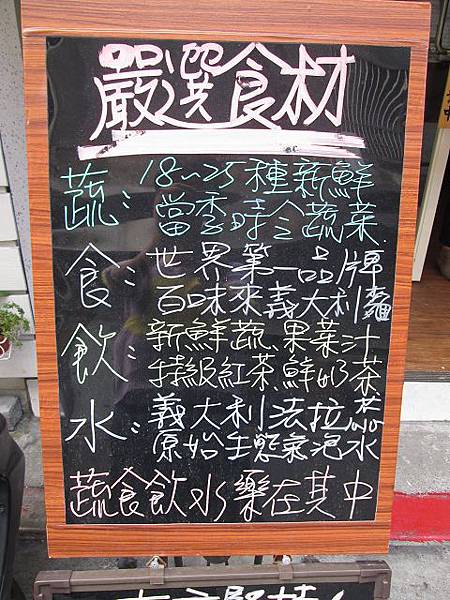 嚴選食材
蔬：18~25種新鮮
當季時令蔬菜
食：世界第一品牌
百味來義大利麵
飲：新鮮蔬果菜汁
特級紅茶鮮奶茶
水：義大利法拉蕊
原始生態氣泡水
蔬食飲水樂在其中